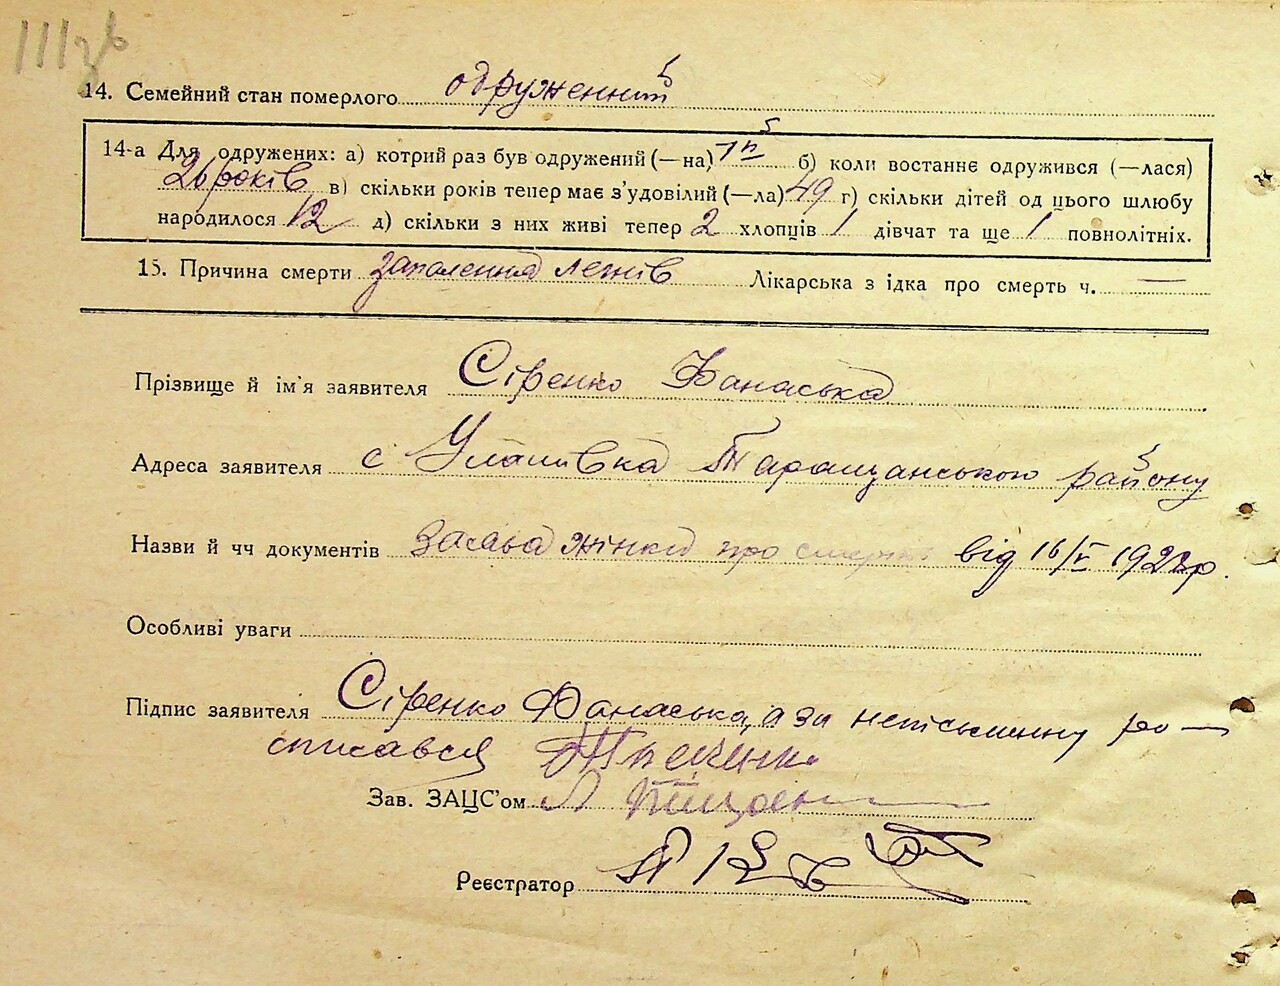 14. Семейний стан померлого одруженний
14-а Для одружених: а) котрий раз був одружений (—на) 1й б) коли востаннє одружився (—лася)
26 років в) скільки років тепер має з'удовілий (—ла) 49 г) скільки дітей од цього шлюбу
народилося 12 д) скільки з них живі тепер 2 хлопців 1 дівчат та ще 1 повнолітніх.
15. Причина смерти заполення легнів Лікарська з ідка про смерть ч. —
Прізвище й ім'я заявителя Сіренко Фанаська
Адреса заявителя с Улашівка Таращанського району
Назви й чч документів заява жінки про смерть від 16/V 1928р.
Особливі уваги
Підпис заявителя Сіренко Фанаська, а за неписьменну ро—
списався
Зав. ЗАЦС'ом
Реєстратор